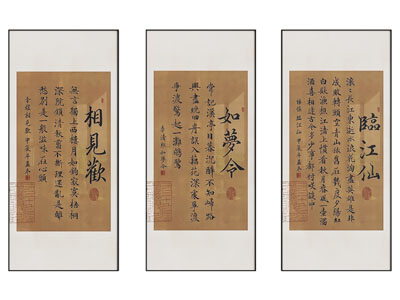 相見歡
無言獨上西樓月如鉤寂寞梧桐
深院鎖清秋剪不斷理還亂是離
愁別是一般滋味在心頭
如夢令
常記溪亭日暮沉醉不知歸路
興盡晚回舟誤入藕花深處爭渡
爭渡驚起一灘鷗鷺
李清照如夢令
臨江仙
滾滾長江東逝水浪花淘盡英雄是非
成敗轉頭空青山舊在幾度夕陽紅
白髮漁樵江渚上慣看秋月春風一壺濁
酒喜相逢古今多少事都付笑談中
楊慎臨江仙